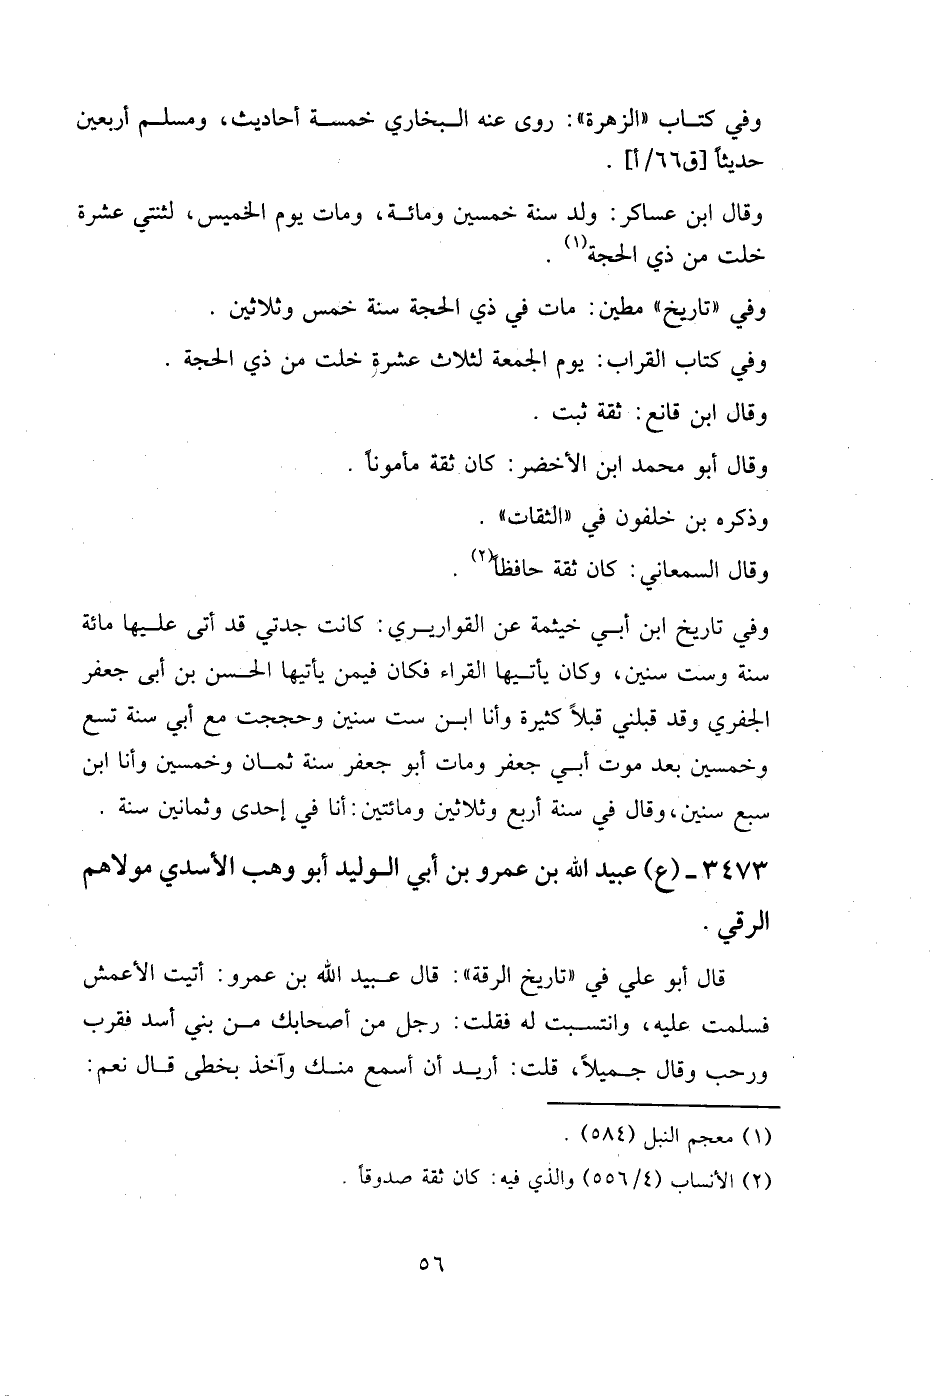 وفي كتاب «الزهرة»: روى عنه البخاري خمسة أحاديث، ومسلم أربعين
حديثاً [ق٦٦/أ] .
وقال ابن عساكر: ولد سنة خمسين ومائة، ومات يوم الخميس، لثنتي عشرة
خلت من ذي الحجة(١) .
وفي «تاريخ» مطين: مات في ذي الحجة سنة خمس وثلاثين .
وفي كتاب القراب: يوم الجمعة لثلاث عشرة خلت من ذي الحجة .
وقال ابن قانع: ثقة ثبت .
وقال أبو محمد ابن الأخضر: كان ثقة مأموناً .
وذكره بن خلفون في «الثقات» .
وقال السمعاني: كان ثقة حافظاً(٢) .
وفي تاريخ ابن أبي خيثمة عن القواريري: كانت جدتي قد أتى عليها مائة
سنة وست سنين، وكان يأتيها القراء فكان فيمن يأتيها الحسن بن أبى جعفر
الجفري وقد قبلني قبلاً كثيرة وأنا ابن ست سنين وحججت مع أبي سنة تسع
وخمسين بعد موت أبي جعفر ومات أبو جعفر سنة ثمان وخمسين وأنا ابن
سبع سنين،وقال في سنة أربع وثلاثين ومائتين:أنا في إحدى وثمانين سنة .
٣٤٧٣ ـ (ع) عبيد الله بن عمرو بن أبي الوليد أبو وهب الأسدي مولاهم
الرقي .
قال أبو علي في «تاريخ الرقة»: قال عبيد الله بن عمرو: أتيت الأعمش
فسلمت عليه، وانتسبت له فقلت: رجل من أصحابك من بني أسد فقرب
ورحب وقال جميلاً، قلت: أريد أن أسمع منك وآخذ بخطى قال نعم:
(١) معجم النبل (٥٨٤) .
(٢) الأنساب (٤/٥٥٦) والذي فيه: كان ثقة صدوقاً .
٥٦